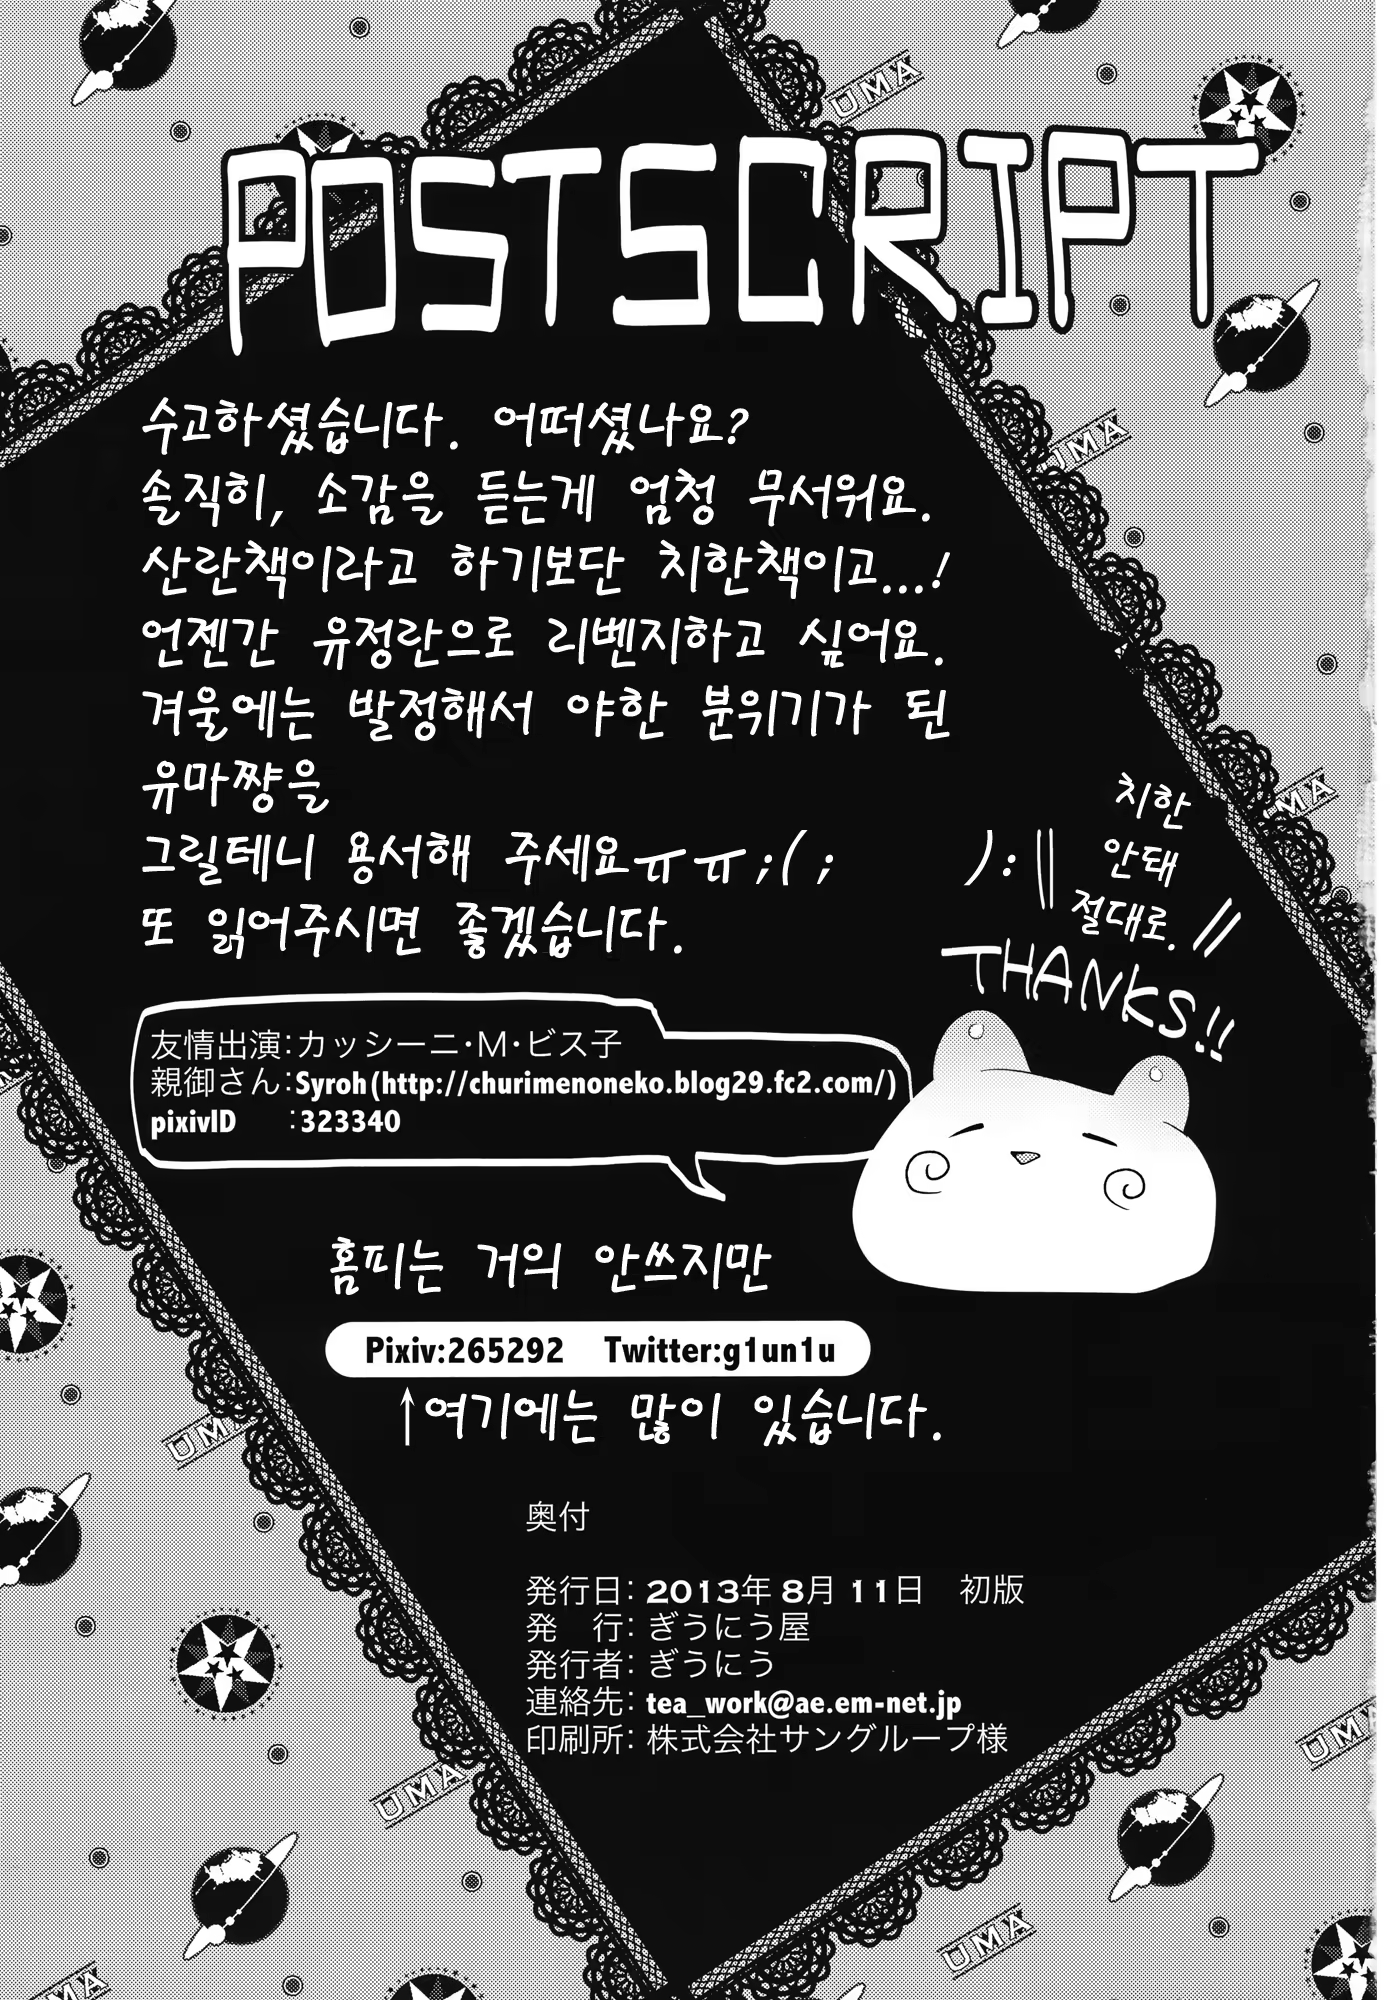 UMA
POSTSCRIPT
수고하셨습니다. 어떠셨나요?
솔직히, 소감을 듣는게 엄청 무서워요.
산란책이라고 하기보단 치한책이고...!
언젠간 유정란으로 리벤지하고 싶어요.
겨울에는 발정해서 야한 분위기가 된
유마쨩을
그릴테니 용서해 주세요ㅠㅠ;(; ):
또 읽어주시면 좋겠습니다.
치한
안돼
절대로.
THANKS!!
友情出演:カッシーニ・M・ビス子
親御さん:Syroh(http://churimenoneko.blog29.fc2.com/)
pixivID :323340
홈피는 거의 안쓰지만
Pixiv:265292 Twitter:g1un1u
↑여기에는 많이 있습니다.
奥付
発行日: 2013年 8月 11日 初版
発 行: ぎうにう屋
発行者: ぎうにう
連絡先: tea_work@ae.em-net.jp
印刷所: 株式会社サングループ様
UMA
UMA
UMA
UMA
UMA
UMA
UMA